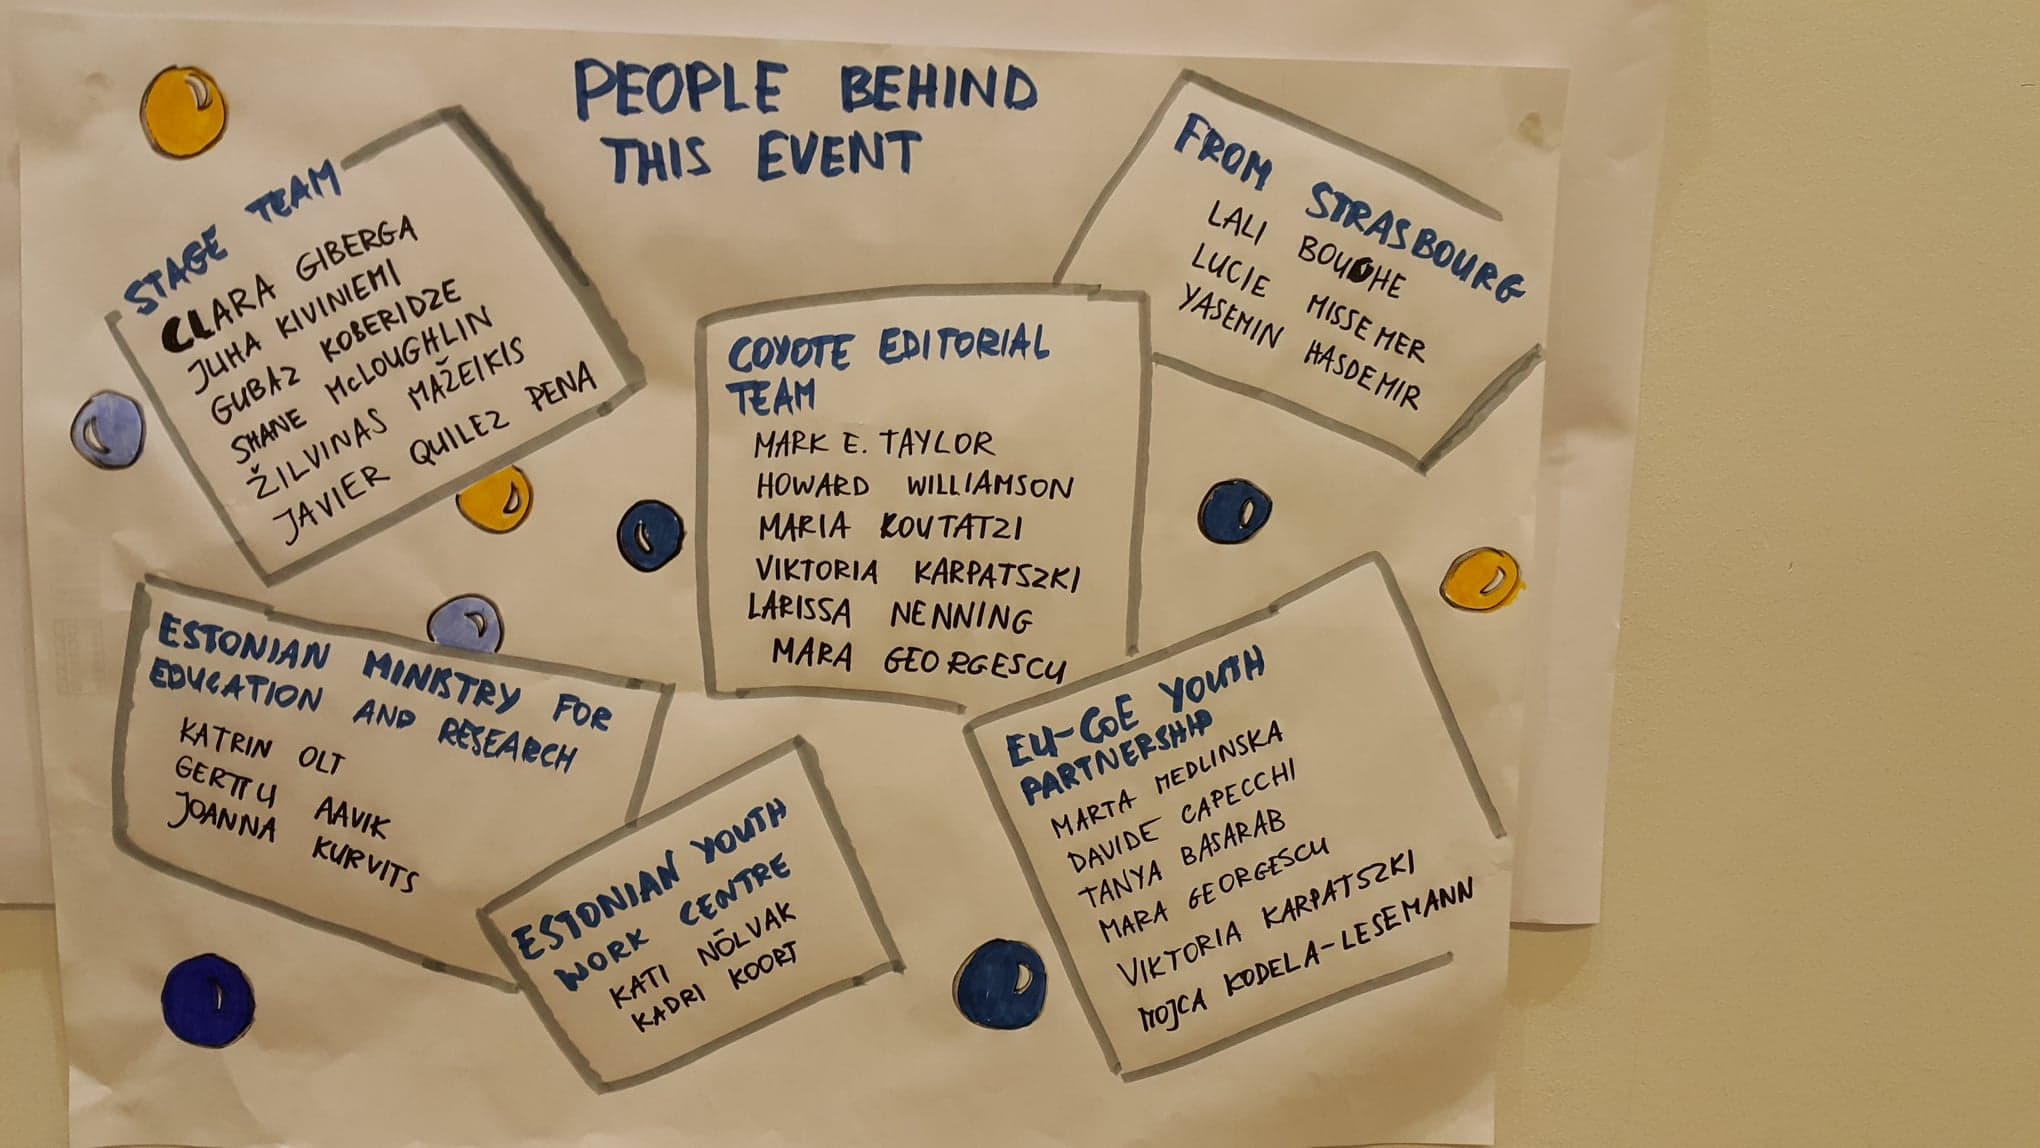 PEOPLE BEHIND
THIS EVENT
STAGE TEAM
CLARA GIBERGA
JUHA KIVINIEMI
GUBAZ KOBERIDZE
SHANE McLOUGHLIN
ŽILVINAS MAŽEIKIS
JAVIER QUILEZ PENA
FROM STRASBOURG
LALI BOUCHE
LUCIE MISSEMER
YASEMIN HASDEMIR
COYOTE EDITORIAL
TEAM
MARK E. TAYLOR
HOWARD WILLIAMSON
MARIA KOUTATZI
VIKTORIA KARPATSZKI
LARISSA NENNING
MARA GEORGESCU
ESTONIAN MINISTRY FOR
EDUCATION AND RESEARCH
KATRIN OLT
GERTTU AAVIK
JOANNA KURVITS
ESTONIAN YOUTH
WORK CENTRE
KATI NÕLVAK
KADRI KOORT
EU-COE YOUTH
PARTNERSHIP
MARTA MEDLINSKA
DAVIDE CAPECCHI
TANYA BASARAB
MARA GEORGESCU
VIKTORIA KARPATSZKI
MOJCA KODELA-LESEMANN